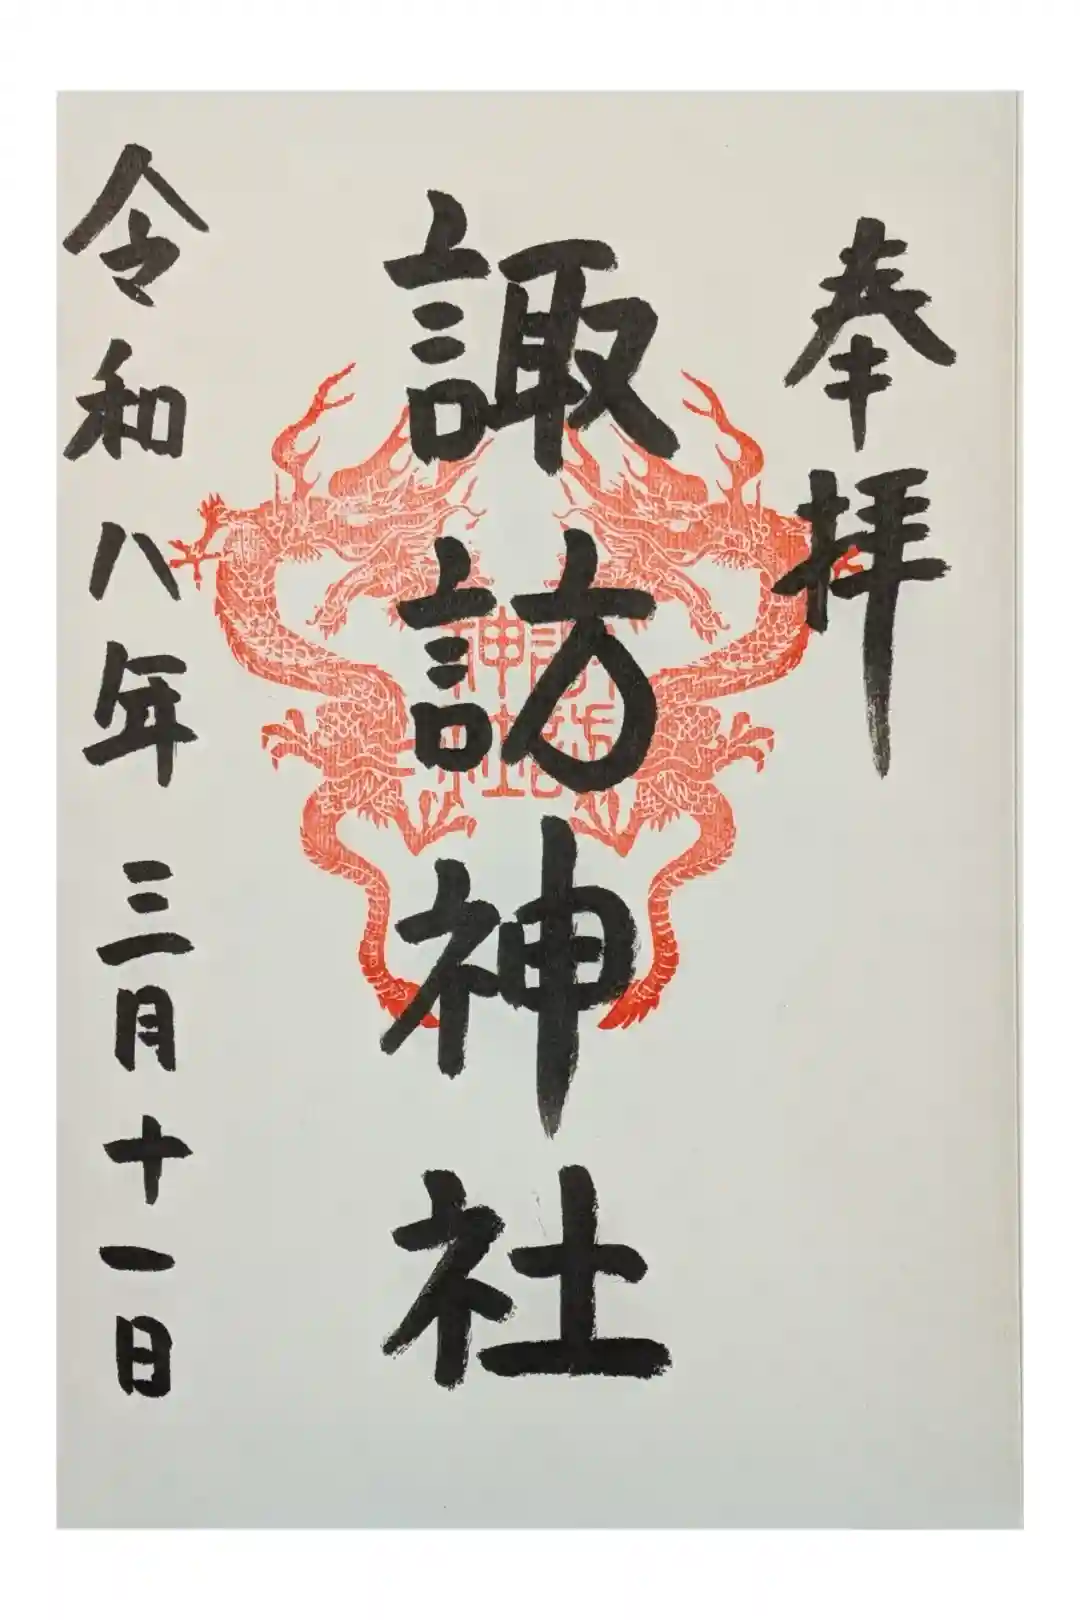 奉拝
諏訪神社
諏訪
神社
令和八年三月十一日